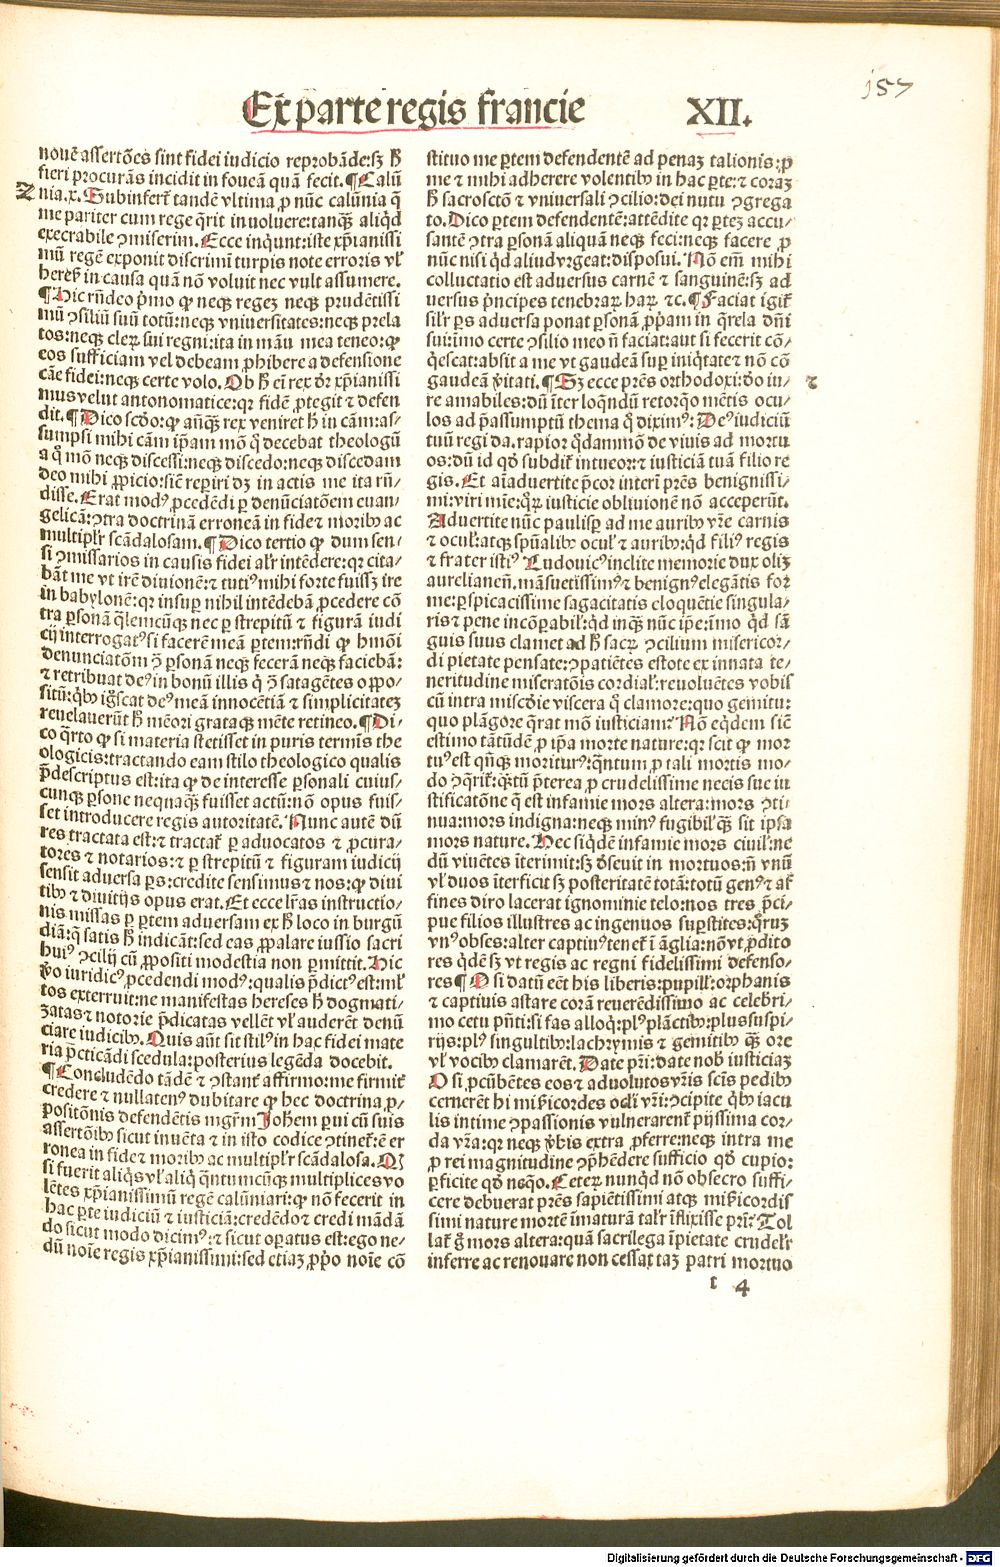 157
Ex parte regis francie XII.
nouẽ assertões sint fidei iudicio reprobãde:sz ħ
fieri procurãs incidit in foueã quã fecit.¶Calũ
Z
nia.x.Subinfert tandẽ vltima ꝓ nũc calũnia q̃
me pariter cum rege q̃rit inuoluere:tanqȝ aliqd
execrabile ↄmiserim.Ecce inq̃unt:iste xp̃ianissi
mũ regẽ exponit discrimĩ turpis note erroris vl̕
heres̕ in causa quã nõ voluit nec vult assumere.
¶Hic rñdeo p̃mo ꝙ neqȝ regeȝ neqȝ prudẽtissi
mũ ↄsiliũ suũ totũ:neqȝ vniuersitates:neqȝ prela
tos:neqȝ cleꝝ sui regni:ita in mãu mea teneo:ꝙ
eos sufficiam vel debeam ꝓhibere a defensione
cãe fidei:neqȝ certe volo.Ob ħ ei̅ rex d̕r xp̃ianissi
mus velut antonomatice:qꝛ fidẽ ꝓtegit ⁊ defen
dit.¶Dico scd̕o:ꝙ añqȝ rex veniret ħ in cãm:as⸗
sumpsi mihi cãm ip̃am mõ q̊ decebat theologũ
a q̊ mõ neqȝ discessi:neqȝ discedo:neqȝ discedam
deo mihi ꝓpicio:siẽ reꝑiri dȝ in actis me ita rñ⸗
disse.Erat modꝰ ꝓcedẽdi ꝑ denũciatõem euan⸗
gelicã:ↄtra doctrinã erroneã in fide ⁊ moribꝰ ac
multipl̕r scãdalosam.¶Dico tertio ꝙ dum sen⸗
si ↄmissarios in causis fidei al̕r intẽdere:qꝛ cita⸗
bãt me vt irẽ diuionẽ:⁊ tutiꝰ mihi forte fuissȝ ire
in babylonẽ:qꝛ insuꝑ nihil intẽdebã ꝓcedere cõ
tra ꝑsonã q̃lemcũqȝ nec ꝑ strepitũ ⁊ figurã iudi
cij interrogatꝰ si facerẽ meã ꝑtem:rñdi ꝙ hmõi
denunciatõm ↄ̃ ꝑsonã neqȝ fecerã neqȝ faciebã:
⁊ retribuat deꝰ in bonũ illis q̃ ↄ̃ satagẽtes oppo⸗
sitũ:qͥbꝰ ig̃scat deꝰ meã innocẽtiã ⁊ simplicitateȝ
reuelauerũt ħ mẽori grataqȝ mẽte retineo.¶Di⸗
co q̃rto ꝙ si materia stetisset in puris termĩs the
ologicis:tractando eam stilo theologico qualis
p̃descriptus est:ita ꝙ de interesse ꝑsonali cuius⸗
cunqȝ ꝑsone nequaqȝ fuisset actũ:nõ opus fuis⸗
set introducere regis autoritatẽ.Nunc autẽ dũ
res tractata est:⁊ tractat̕ ꝑ aduocatos ⁊ ꝓcura⸗
tores ⁊ notarios:⁊ ꝑ strepitũ ⁊ figuram iudicij
sensit aduersa ꝑs:credite sensimus ⁊ nos:ꝙ diui
tibꝰ ⁊ diuitijs opus erat.Et ecce lr̃as instructio⸗
nis missas ꝑ ꝑtem aduersam ex ħ loco in burgũ
diã:q̃ satis ħ indicãt:sed eas ꝓpalare iussio sacri
huiꝰ ↄcilij cũ ꝓpositi modestia non ꝑmittit.Hic
vo̊ iuridicꝰ ꝓcedendi modꝰ:qualis p̃dictꝰ est:ml̕
tos exterruit:ne manifestas hereses ħ dogmati⸗
zatas ⁊ notorie p̃dicatas vellẽt vl̕ auderẽt denũ
ciare iudicibꝰ.Quis aũt sit stilꝰ in hac fidei mate
ria p̃cticãdi scedula:posterius legẽda docebit.
¶Concludẽdo tãdẽ ⁊ ↄstant̕ affirmo:me firmit̕
credere ⁊ nullatenꝰ dubitare ꝙ hec doctrina ꝓ⸗
positõnis defendẽtis mgr̃m Johẽm parui cũ suis
assertõibꝰ sicut inuẽta ⁊ in isto codice ↄtinet̕:ẽ er
ronea in fide ⁊ moribꝰ ac multipl̕r scãdalosa.Qȝ
si fuerit aliq̃s vl̕ aliq̃ q̃ntumcũqȝ multiplices vo
lẽtes xp̃ianissimũ regẽ calũniari:ꝙ nõ fecerit in
hac ꝑte iudiciũ ⁊ iusticiã:credẽdo ⁊ credi mãdã
do sicut modo dicimꝰ:⁊ sicut oꝑatus est:ego ne⸗
dũ noĩe regis xp̃ianissimi:sed etiaȝ ꝓp̕o noĩe cõ
stituo me ꝑtem defendentẽ ad penaȝ talionis:ꝓ
me ⁊ mihi adherere volentibꝰ in hac ꝑte:⁊ coraȝ
ħ sacroscto̅ ⁊ vniuersali ↄcilio:dei nutu ↄgrega
to.Dico ꝑtem defendentẽ:attẽdite qꝛ ꝑteȝ accu⸗
santẽ ↄtra ꝑsonã aliquã neqȝ feci:neqȝ facere ꝓ
nũc nisi qd̕ aliud vrgeat:disposui.Nõ em̃ mihi
colluctatio est aduersus carnẽ ⁊ sanguinẽ:sȝ ad
uersus p̃ncipes tenebraꝝ haꝝ ⁊c.¶Faciat igit̕
sil̕r ꝑs aduersa ponat ꝑsonã ꝓp̕am in q̃rela dñi
sui:imo certe ↄsilio meo ñ faciat:aut si fecerit cõ⸗
q̃escat:absit a me vt gaudeã suꝑ iniq̃tate ⁊ nõ cõ
gaudeã v̕itati.¶Sȝ ecce pr̃es orthodoxi:d̕o iu⸗
⁊
re amabiles:dũ ĩter loq̃ndũ retorq̃o mẽtis ocu⸗
los ad p̃assumptũ thema q̊ diximꝰ:Deꝰ iudiciũ
tuũ regi da.rapior q̃dammõ de viuis ad mortu
os:dũ id qd̕ subdit̕ intueor:⁊ iusticiã tuã filio re
gis.Et aĩaduertite p̃cor interĩ pr̃es benignissi⸗
mi:viri mĩe:q̃ꝝ iusticie obliuionẽ nõ acceperũt.
Aduertite nũc paulisꝑ ad me auribꝰ vr̃e carnis
⁊ ocul̕:atqȝ spũalibꝰ ocul̕ ⁊ auribꝰ:qd̕ filiꝰ regis
⁊ frater istiꝰ Ludouicꝰ inclite memorie dux olim
aurelianeñ.mãsuetissimꝰ ⁊ benignꝰ elegãtis for
me:ꝑspicacissime sagacitatis eloquẽtie singula⸗
ris ⁊ pene incõꝑabil̕:qd̕ inqȝ nũc ip̃e:ĩmo qd̕ sã
guis suus clamet ad ħ sacꝝ ↄcilium misericor⸗
di pietate pensate:ↄpatiẽtes estote ex innata te⸗
neritudine miseratõis cordial̕:reuoluẽtes vobis
cũ intra miscd̕ie viscera q̊ clamore:quo gemitu:
quo plãgore q̃rat mõ iusticiam?Nõ eqd̕em siẽ
estimo tãtũdẽ ꝓ ip̃a morte nature:qꝛ scit ꝙ mor
tuꝰ est qñqȝ moriturꝰ:q̃ntum ꝓ tali mortis mo⸗
do ↄq̃rit̕:q̃tũ p̃terea ꝓ crudelissime necis sue iu
stificatõne q̃ est infamie mors altera:mors ↄti⸗
nua:mors indigna:neqȝ minꝰ fugibil̕ qȝ sit ipsa
mors nature.Hec siqd̕ẽ infamie mors ciuil̕:ne
dũ viuẽtes ĩterimit:sȝ d̕seuit in mortuos:ñ vnũ
vl̕ duos ĩterficit sȝ posteritatẽ totã:totũ genꝰ ⁊ af
fines diro lacerat ignominie telo:nos tres p̃ci⸗
pue filios illustres ac ingenuos suꝑstites:q̃ruȝ
vnꝰ obses:alter captiuꝰ tenet̕ ĩ ãglia:nõ vt ꝓdito
res qd̕ẽ sȝ vt regis ac regni fidelissimi defenso⸗
res¶O si datũ eẽt his liberis:pupill̕:orphanis
⁊ captiuis astare corã reuerẽdissimo ac celebri⸗
mo cetu pñti:si fas alloq̃:plꝰ plãctibꝰ:plus suspi⸗
rijs:plꝰ singultibꝰ:lachrymis ⁊ gemitibꝰ qȝ ore
vl̕ vocibꝰ clamarẽt.Date pr̃i:date nob̕ iusticiaȝ
O si ꝓcũbẽtes eos ⁊ aduolutos vr̃is scĩs pedibꝰ
cernerẽt hi mis̕icordes ocl̕i vr̃i:ↄcipite qͥbꝰ iacu
lis intime ↄpassionis vulnerarent̕ pijssima cor⸗
da vr̃a:qꝛ neqȝ v̕bis extra ꝓferre:neqȝ intra me
ꝓ rei magnitudine ↄp̃hẽdere sufficio qd̕ cupio:
ꝑficite qd̕ neq̃o.Ceteꝝ nunqd̕ nõ obsecro suffi⸗
cere debuerat pr̃es sapiẽtissimi atqȝ mis̕icordis
simi nature mortẽ ĩmaturã tal̕r ĩflixisse pr̃i?Tol
lat̕ g̊ mors altera:quã sacrilega ĩpietate crudel̕r
inferre ac renouare non cessat taȝ patri mortuo
t 4
Digitalisierung gefördert durch die Deutsche Forschungsgemeinschaft - DFG